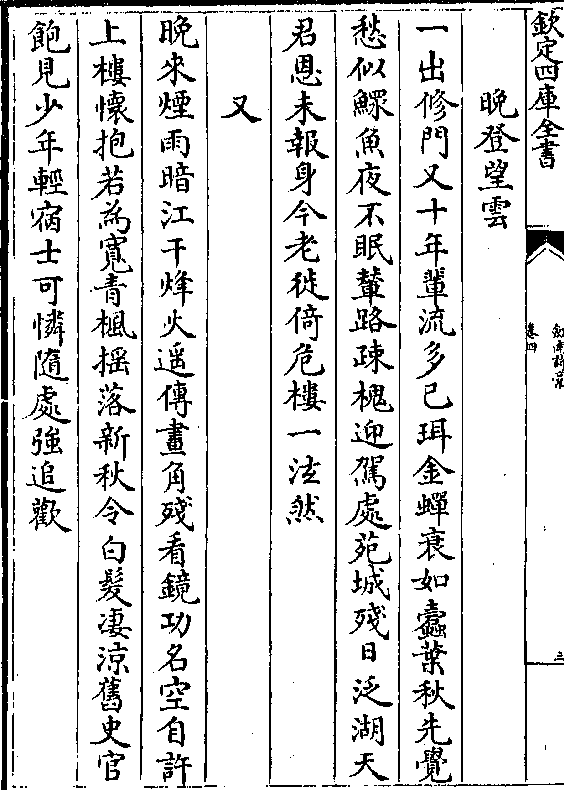 欽定四庫全書
劍南詩稾
卷四
三
晚登望雲
一出修門又十年輩流多已珥金蟬衰如蠹葉秋先覺
愁似鰥魚夜不眠輦路疎槐迎駕處苑城殘日泛湖天
君恩未報身今老徙倚危樓一泫然
又
晚來煙雨暗江干烽火遥傳畫角殘看鏡功名空自許
上樓懷抱若為寬青楓摇落新秋令白髮淒涼舊史官
飽見少年輕宿士可憐隨處強追歡